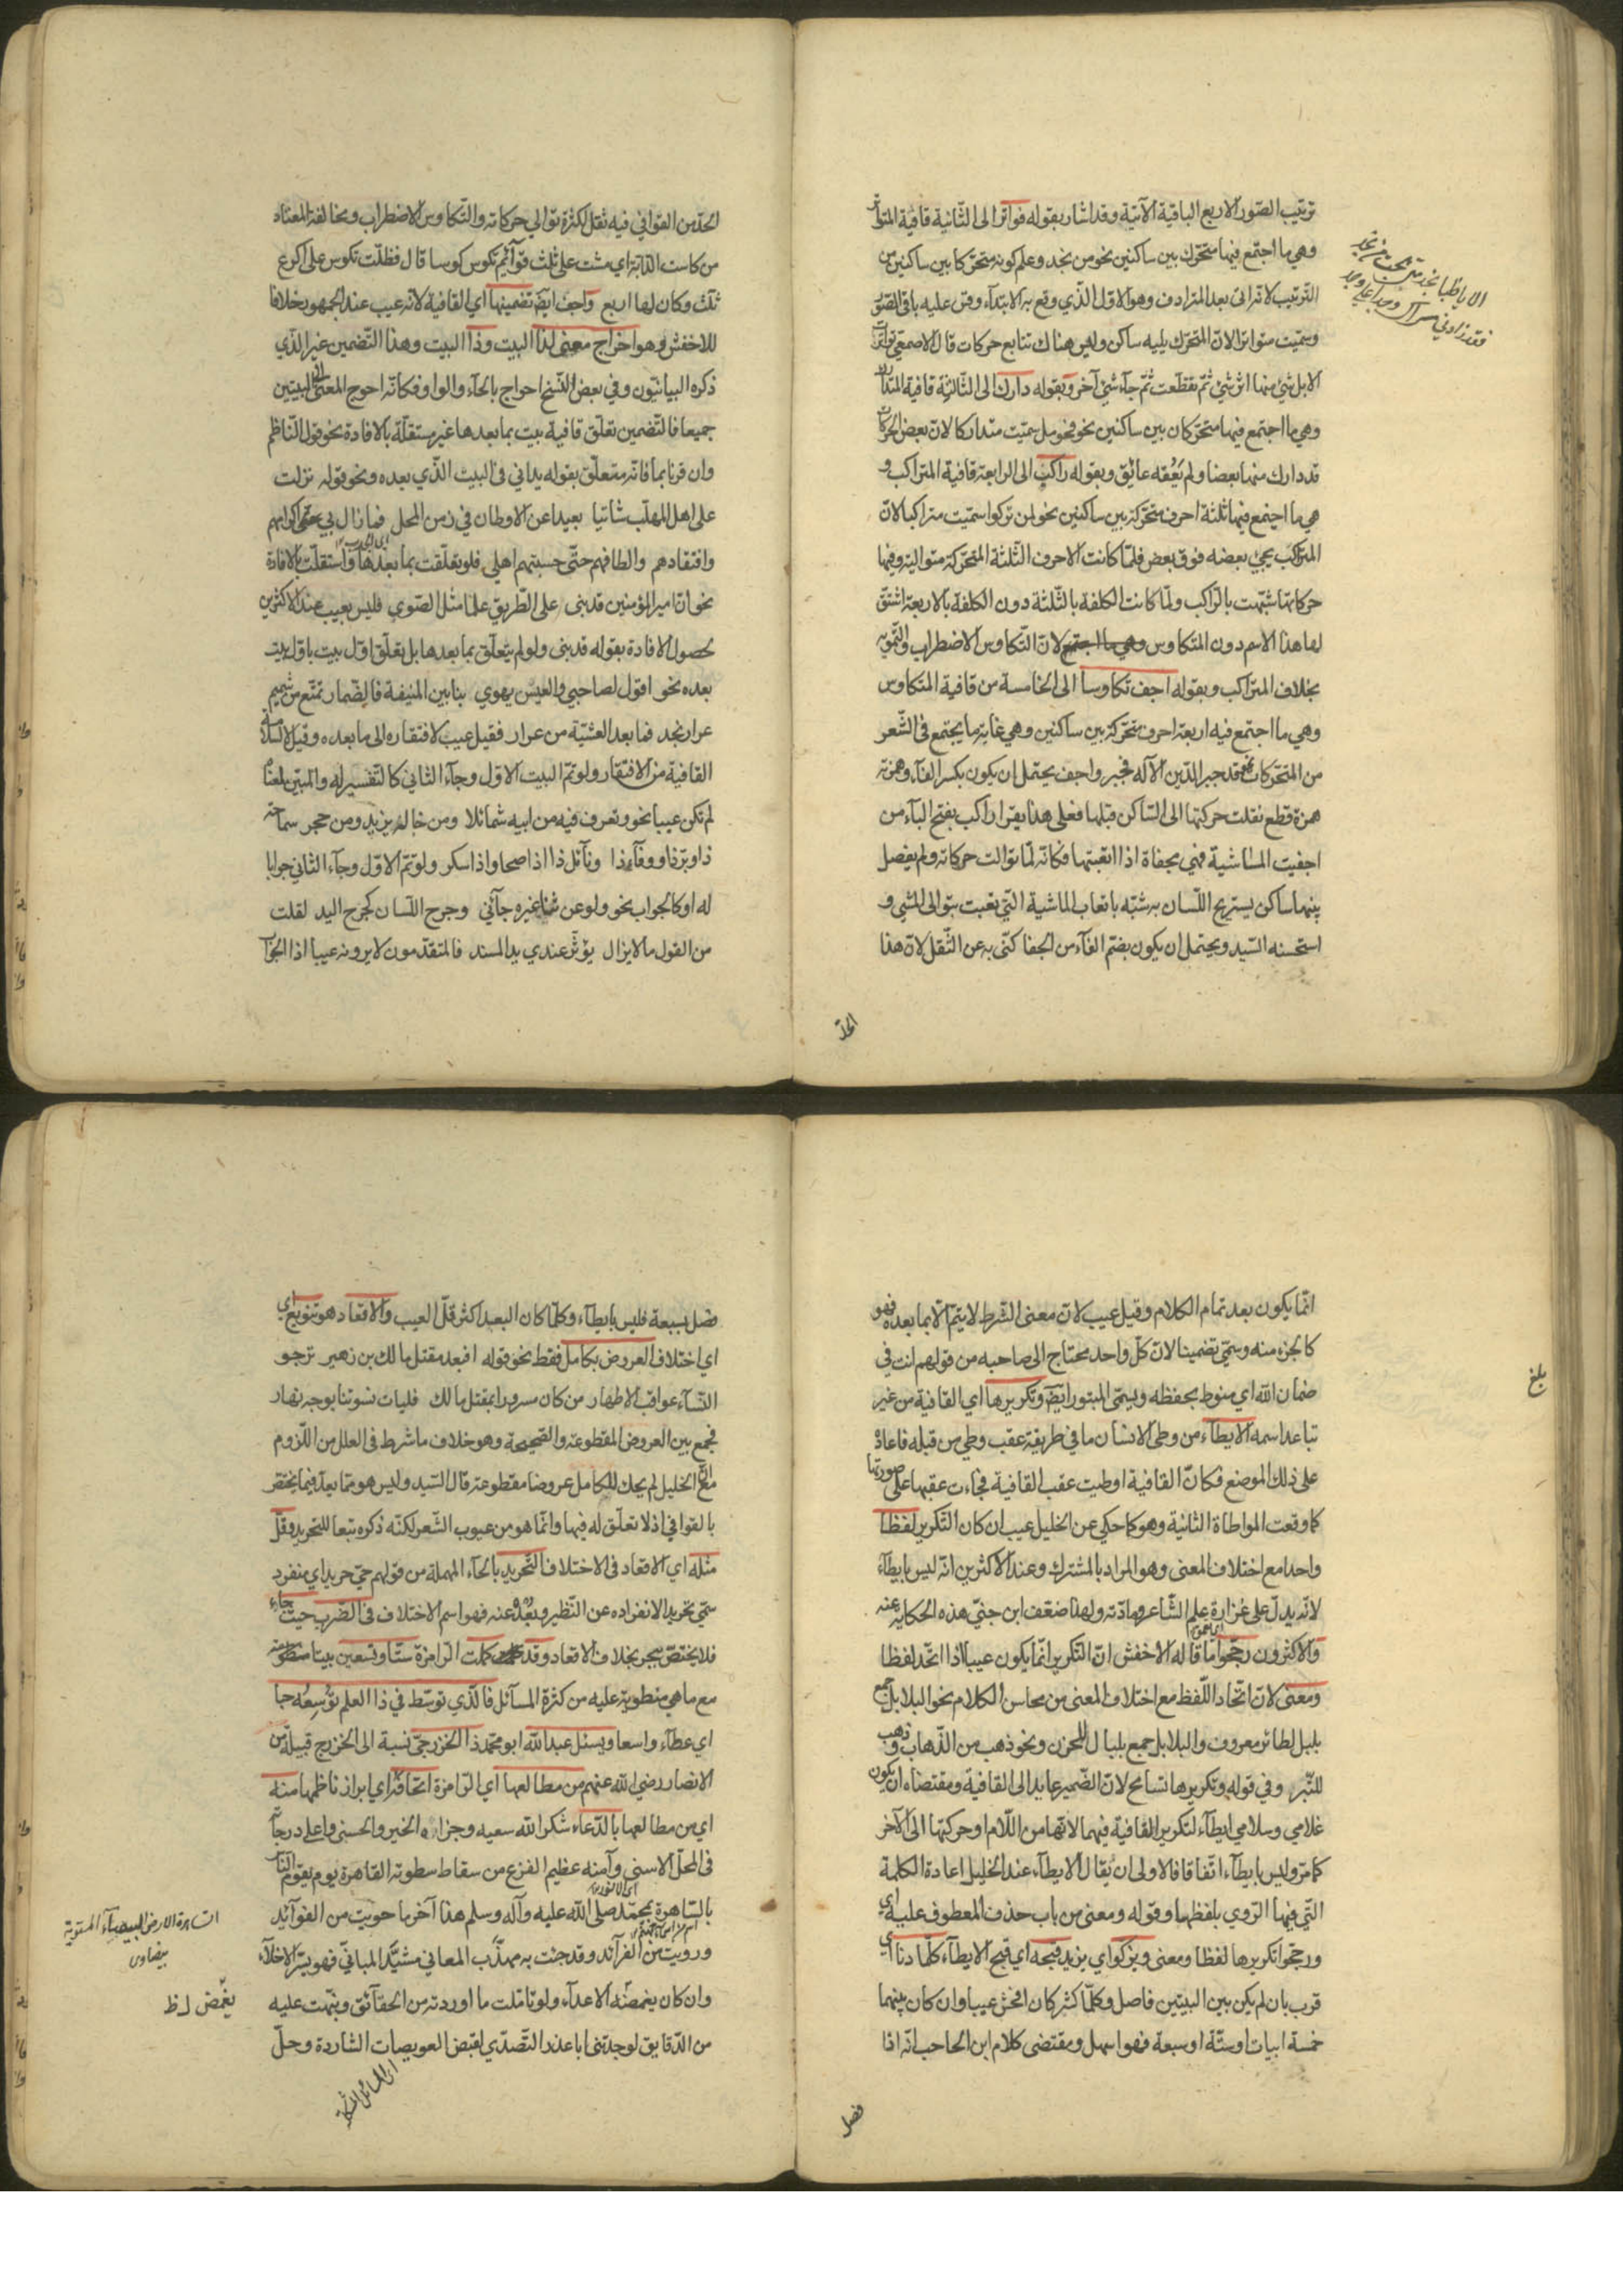 ترتيب الصّور الاربع الباقية الآتية وقد اشار بقوله فواترا الى الثّانية قافية المتواتر
وهي ما اجتمع فيها متحرّك بين ساكنين نحو من نجد وعلم كونه متحرّكا بين ساكنين من
التّرتيب لانّه اتى بعد المترادف وهو الاوّل الّذي وقع به الابتداء وقس عليه باقي الصّور
وسمّيت متواترا لانّ المتحرّك يليه ساكن وليس هناك تتابع حركات قال الاصمعيّ تواترت
الابل شيء منها اثر شيء ثمّ تقطّعت ثمّ جآء شيء آخر وبقوله دارك الى الثّالثة قافية المتدارك
وهي ما اجتمع فيها متحرّكان بين ساكنين نحو فحومل سمّيت متداركا لانّ بعض الحركات
قد دارك منها بعضا ولم يَعُقه عائق وبقوله راكب الى الرابعة قافية المتراكب و
هي ما اجتمع فيها ثلثة احرف متحرّكة بين ساكنين نحو لمن تركوا سمّيت متراكبا لانّ
المتراكب يجيء بعضه فوق بعض فلمّا كانت الاحرف الثّلثة المتحرّكة متوالية وفيها
حركاتها شبّهت بالرّاكب ولمّا كانت الكلفة بالثّلثة دون الكلفة بالاربعة اشتقّ
لها هذا الاسم دون المتكاوس وهي ما اجتمع لانّ التّكاوس الاضطراب والتّمويه
بخلاف المتراكب وبقوله اجف تكاوسا الى الخامسة من قافية المتكاوس
وهي ما اجتمع فيه اربعة احرف متحرّكة بين ساكنين وهي غاية ما يجتمع فى الشّعر
من المتحرّكات نحو قد جبر الدّين الآله فجبر واجف يحتمل ان يكون بكسر الفآء وهمزته
همزة قطع نقلت حركتها الى السّاكن قبلها فعلى هذا يقرا راكب بفتح البآء من
اجفيت الماشية فهي مجفاة اذا اتعبتها فكانّه لمّا توالت حركاته ولم يفصل
بينها ساكن يستريح اللّسان به شبّه باتعاب الماشية الّتي تعبت بتوالى المشي و
استحسنه السّيد ويحتمل ان يكون بضمّ الفآء من الجفا كنّى به عن الثّقل لانّ هذا
الحدّ
الحدّ من القوافي فيه ثقل لكثرة توالي حركاته والتّكاوس الاضطراب ومخالفة المعتاد
من كاست الدّابّة اي مشت على ثلث قوآئم تكوس كوسا قال فظلّت تكوس على اكرع
ثلث وكان لها اربع واجف ايضا تضمينها اي القافية لانّه عيب عند الجمهور خلافا
للاخفش وهو اخراج معنى لذا البيت وذا البيت وهذا التّضمين غير الّذي
ذكره البيانيّون وفي بعض النّسخ احواج بالحآء والواو فكانّه احوج المعنى الى البيتين
جميعا فالتّضمين تعلّق قافية بيت بما بعدها غير مستقلّة بالافادة نحو قول النّاظم
وان قرنا بما فانّه متعلّق بقوله يداني فى البيت الّذي بعده ونحو قوله نزلت
على اهل المهلّب شاتيا بعيدا عن الاوطان في زمن المحل فما زال بي اكرامهم
وافتقادهم والطافهم حتّى حسبتهم اهلي فلو تعلّقت بما بعدها واستقلّت بالافادة
نحو انّ امير المؤمنين قد بنى على الطّريق علما مثل الصّوى فليس بعيب عند الاكثرين
لحصول الافادة بقوله قد بنى ولو لم يتعلّق بما بعدها بل تعلّق اوّل بيت باوّل بيت
بعده نحو اقول لصاحبي والعيس يهوي بنا بين المنيفة فالضّمار تمتّع من شميم
عرار نجد فما بعد العشيّة من عرار فقيل عيب لافتقاره الى ما بعده وقيل لا لسلامة
القافية من الافتقار ولو تمّ البيت الاوّل وجآء الثاني كالتّفسير له والمبيّن لمعناه
لم تكن عيبا نحو وتعرف فيه من ابيه شمائلا ومن خاله يزيد ومن حجر سماحة
ذا وبرّ ذا ووفآء ذا ونآئل ذا اذا صحا واذا سكر ولو تمّ الاوّل وجآء الثاني جوابا
له او كالجواب نحو ولو عن نثا غيره جآئني وجرح اللّسان كجرح اليد لقلت
من القول ما لا يزال يؤثّر عندي يد المسند فالمتقدّمون لا يرونه عيبا اذا الجوآب
انّما يكون بعد تمام الكلام وقيل عيب لانّ معنى الشّرط لا يتمّ الّا بما بعده فهو
كالجزء منه وسمّي تضمينا لانّ كلّ واحد محتاج الى صاحبه من قولهم انت في
ضمان اللّه اي منوط بحفظه ويسمّى المبتور ايضا وتكريرها اي القافية من غير
تباعد اسمه الايطآء من وطئ الانسان ما في طريقة عقب وطي من قبله فاعاد
على ذلك الموضع فكانّ القافية اوطيت عقب القافية فجاءت عقبها على صورتها
كما وقعت المواطاة الثانية وهو كما حكي عن الخليل عيب ان كان التّكرير لفظا
واحدا مع اختلاف المعنى وهو المراد بالمشترك وعند الاكثرين انّه ليس بايطآء
لانّه يدلّ على غزارة علم الشّاعر ومادّته ولهذا ضعّف ابن جنّي هذه الحكاية عنه
والاكثرون رجّحوا ما قاله الاخفش انّ التّكرير انّما يكون عيبا اذا اتّحد لفظا
ومعنى لانّ اتّحاد اللّفظ مع اختلاف المعنى من محاسن الكلام نحو البلابل جمع
بلبل لطائر معروف والبلابل جمع بلبال للحزن ونحو ذهب من الذّهاب وذهب
للتّبر وفي قوله وتكريرها تسامح لانّ الضّمير عايد الى القافية ومقتضاه ان يكون
غلامي وسلامي ايطآء لتكرير القافية فيهما لانّها من اللّام وحركتها الى الآخر
كما مرّ وليس بايطآء اتّفاقا فالاولى ان يقال الايطآء عند الخليل اعادة الكلمة
الّتي فيها الرّوي بلفظها وقوله ومعنى من باب حذف المعطوف عليه اي
ورجّحوا تكريرها لفظا ومعنى ويزكو اي يزيد قبحه اي قبح الايطآء كلّما دنا اي
قرب بان لم يكن بين البيتين فاصل وكلّما كثر كان افحش عيبا وان كان بينهما
خمسة ابيات او ستّة او سبعة فهو اسهل ومقتضى كلام ابن الحاجب انّه اذا
بلغ
فصل
فصل بسبعة فليس بايطآء وكلّما كان البعد اكثر قلّ العيب والاقعاد هو تنويع اي
اي اختلاف العروض بكامل فقط نحو قوله افبعد مقتل مالك بن زهير ترجو
النّسآء عواقب الاطهار من كان مسرورا بمقتل مالك فليات نسوتنا بوجه نهار
فجمع بين العروض المقطوعة والصّحيحة وهو خلاف ما شرط فى العلل من اللّزوم
مع انّ الخليل لم يحك للكامل عروضا مقطوعة قال السّيد وليس هو ممّا يعدّ فيما يختصّ
بالقوافي اذ لا تعلّق له فيها وانّما هو من عيوب الشّعر لكنّه ذكره تبعا للتّحريد وقل
مثله اي الاقعاد فى الاختلاف التّحريد بالحآء المهملة من قولهم حيّ حريد اي منفرد
سمّي تحريدا لانفراده عن النّظير وبعده عنه فهو اسم الاختلاف فى الضّرب حيث جاء
فلا يختصّ ببحر بخلاف الاقعاد وقد كملت الرّامزة ستّا وتسعين بيتا
مع ما هي منطوية عليه من كثرة المسآئل فالّذي توسّط في ذا العلم توسعه حبا
اي عطآء واسعا ويسئل عبد اللّه ابو محمّد ذا الخزرجيّ نسبة الى الخزرج قبيلة من
الانصار رضي اللّه عنهم من مطالعها اي الرّامزة اتحافه اي ابراز ناظمها منه
اي من مطالعها بالدّعاء شكر اللّه سعيه وجزاه الخير والحسنى واعلى درجاته
فى المحلّ الاسنى وآمنه عظيم الفزع من سقاط سطوته القاهرة يوم يقوم النّاس
بالسّاهرة بمحمّد صلى اللّه عليه وآله وسلم هذا آخر ما حويت من الفوآئد
ورويت من الفرآئد وقد جئت به مهذّب المعاني مشيّد المباني فهو يسرّ الاخلّآء
وان كان يغمضه الاعدآء ولو تامّلت ما اوردته من الحقآئق ونبّهت عليه
من الدّقايق لوجدتني ابا عذر التّصدّي لقبض العويصات الشاردة وحلّ
الساهرة الارض البيضآء المستوية
بيضاوى
يغمض لظ